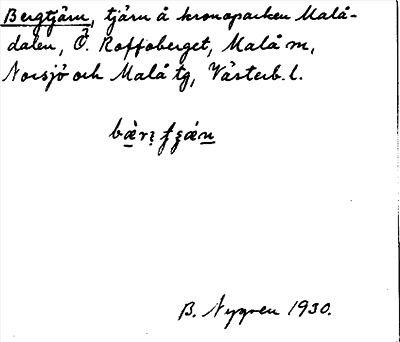 Bergtjärn, tjärn å kronoparken Malå-
dalen, Ö. Roffoberget, Malå m,
Norsjö och Malå tg, Västerb. l.
B. Nygren 1930.